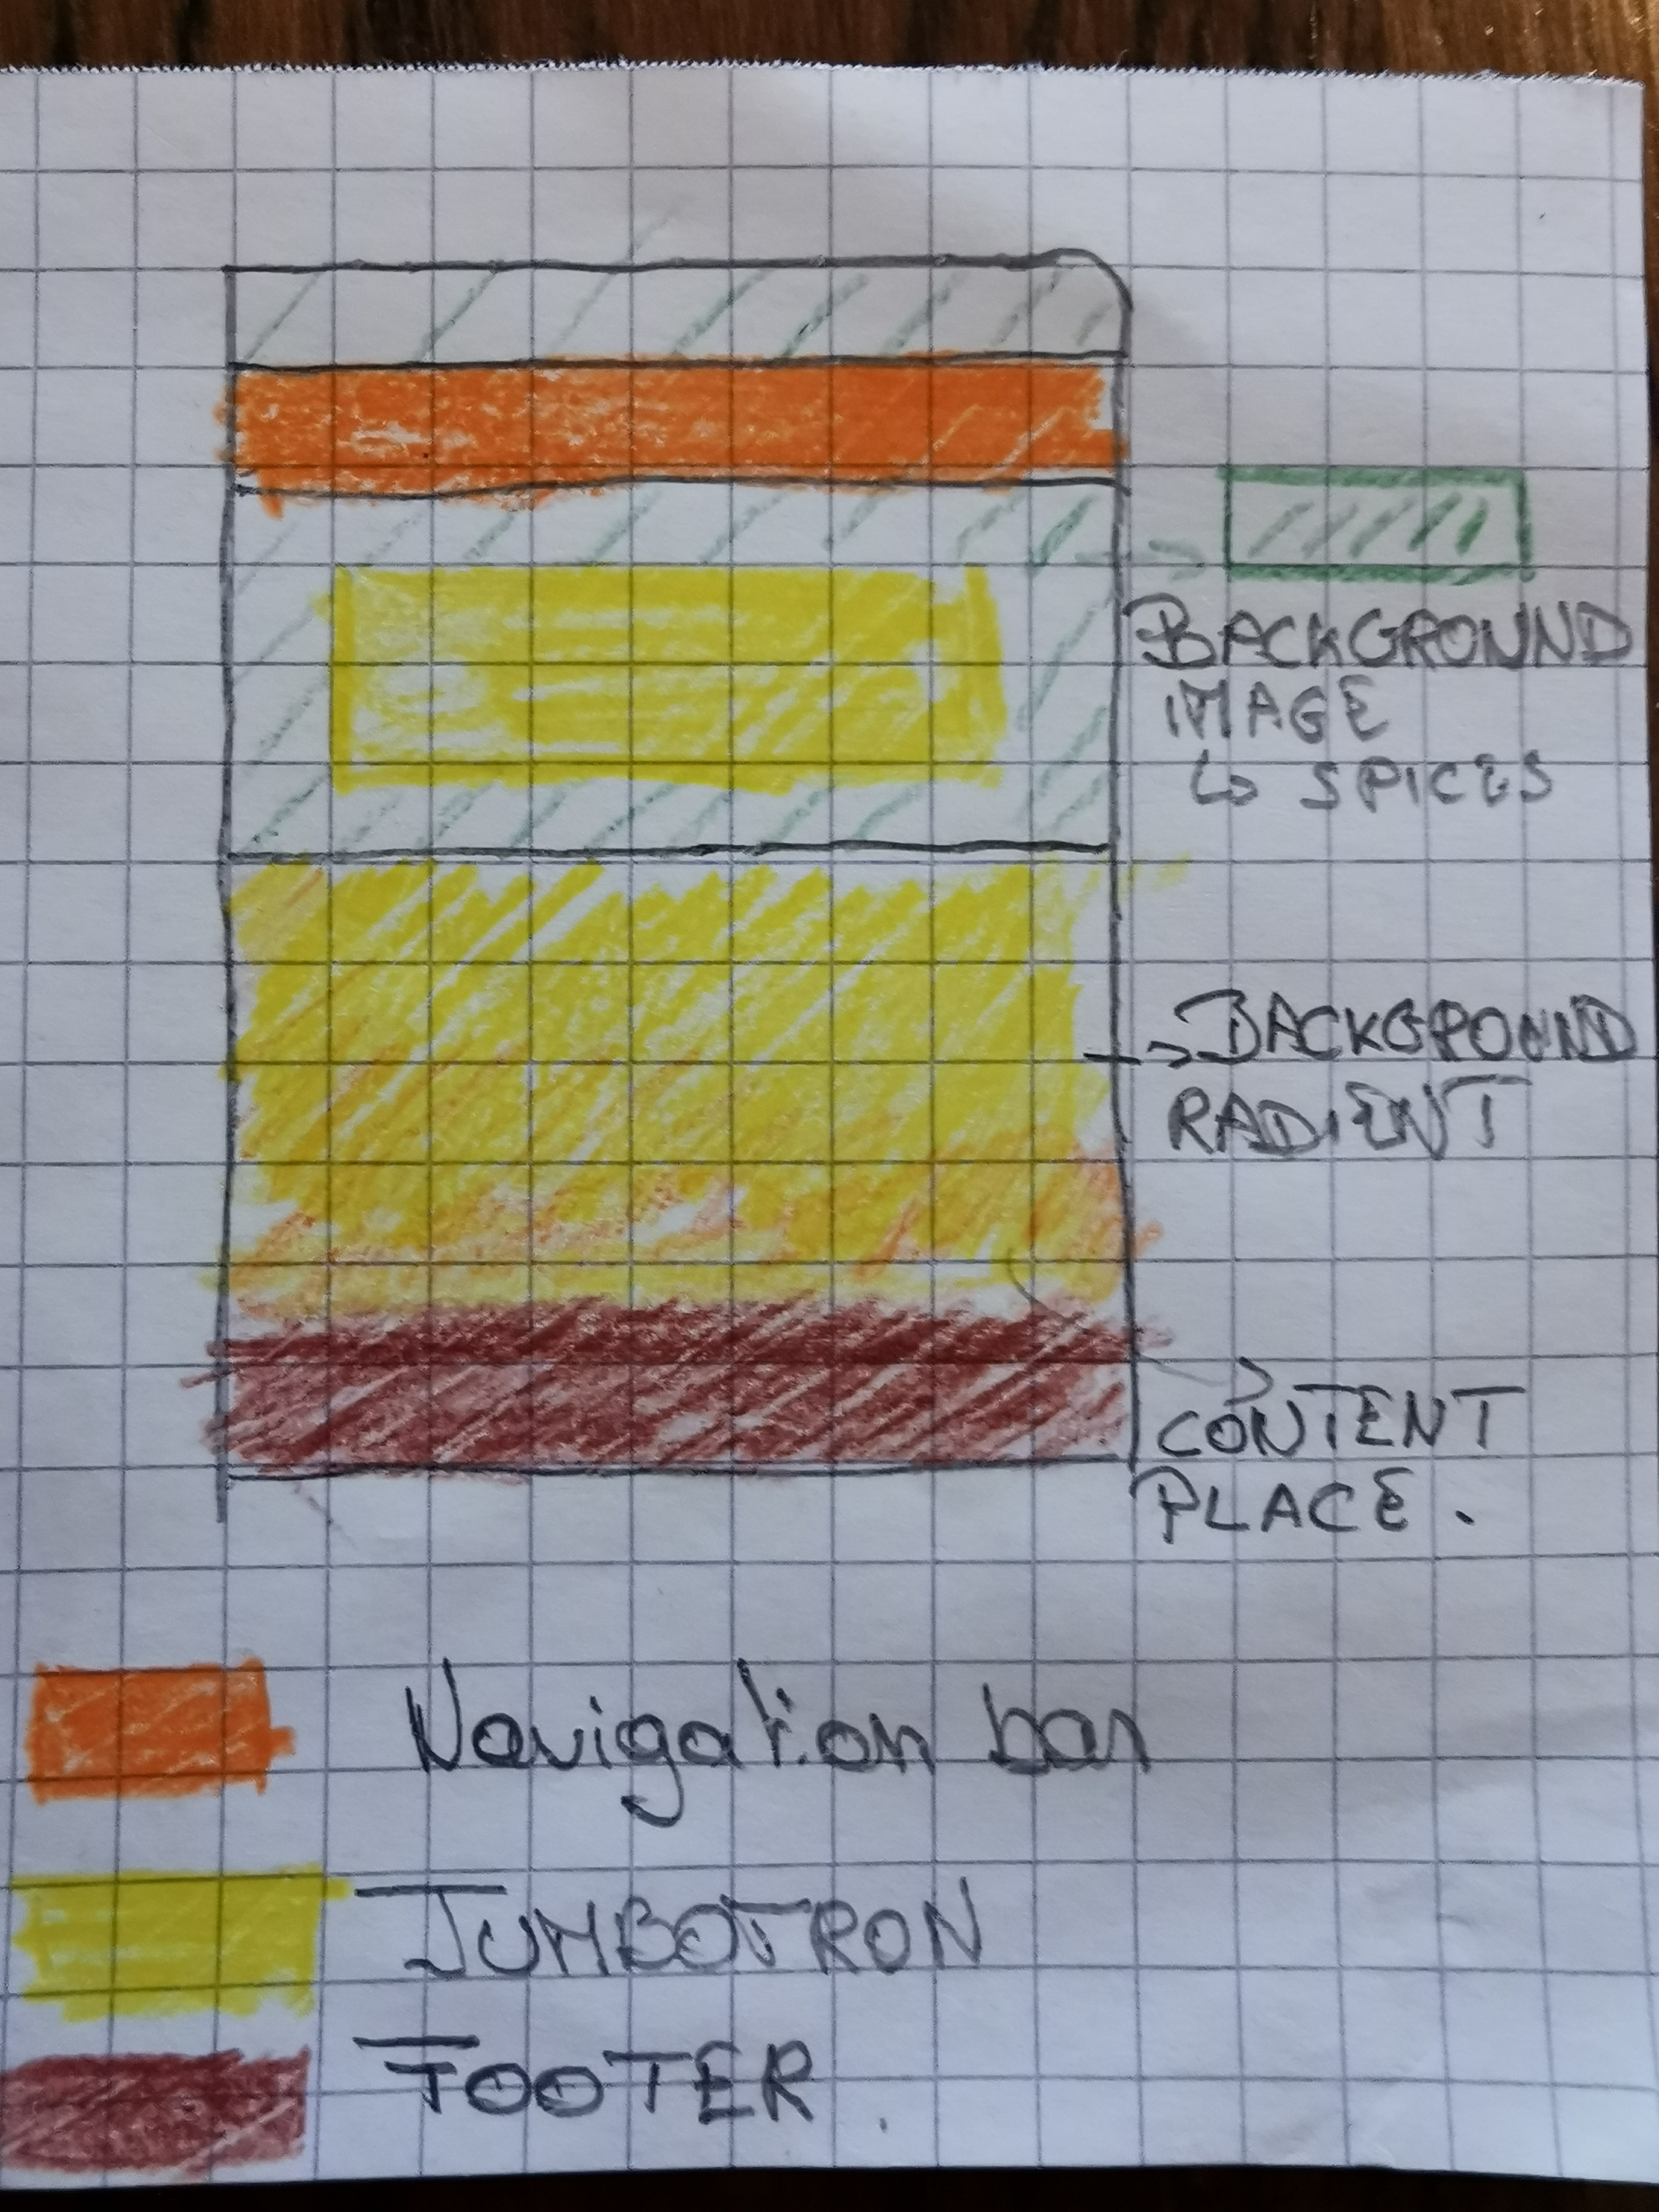 BACKGROUND
IMAGE
↳ SPICES
→ BACKGROUND
RADIENT
CONTENT
PLACE.
Navigation bar
JUMBOTRON
FOOTER.